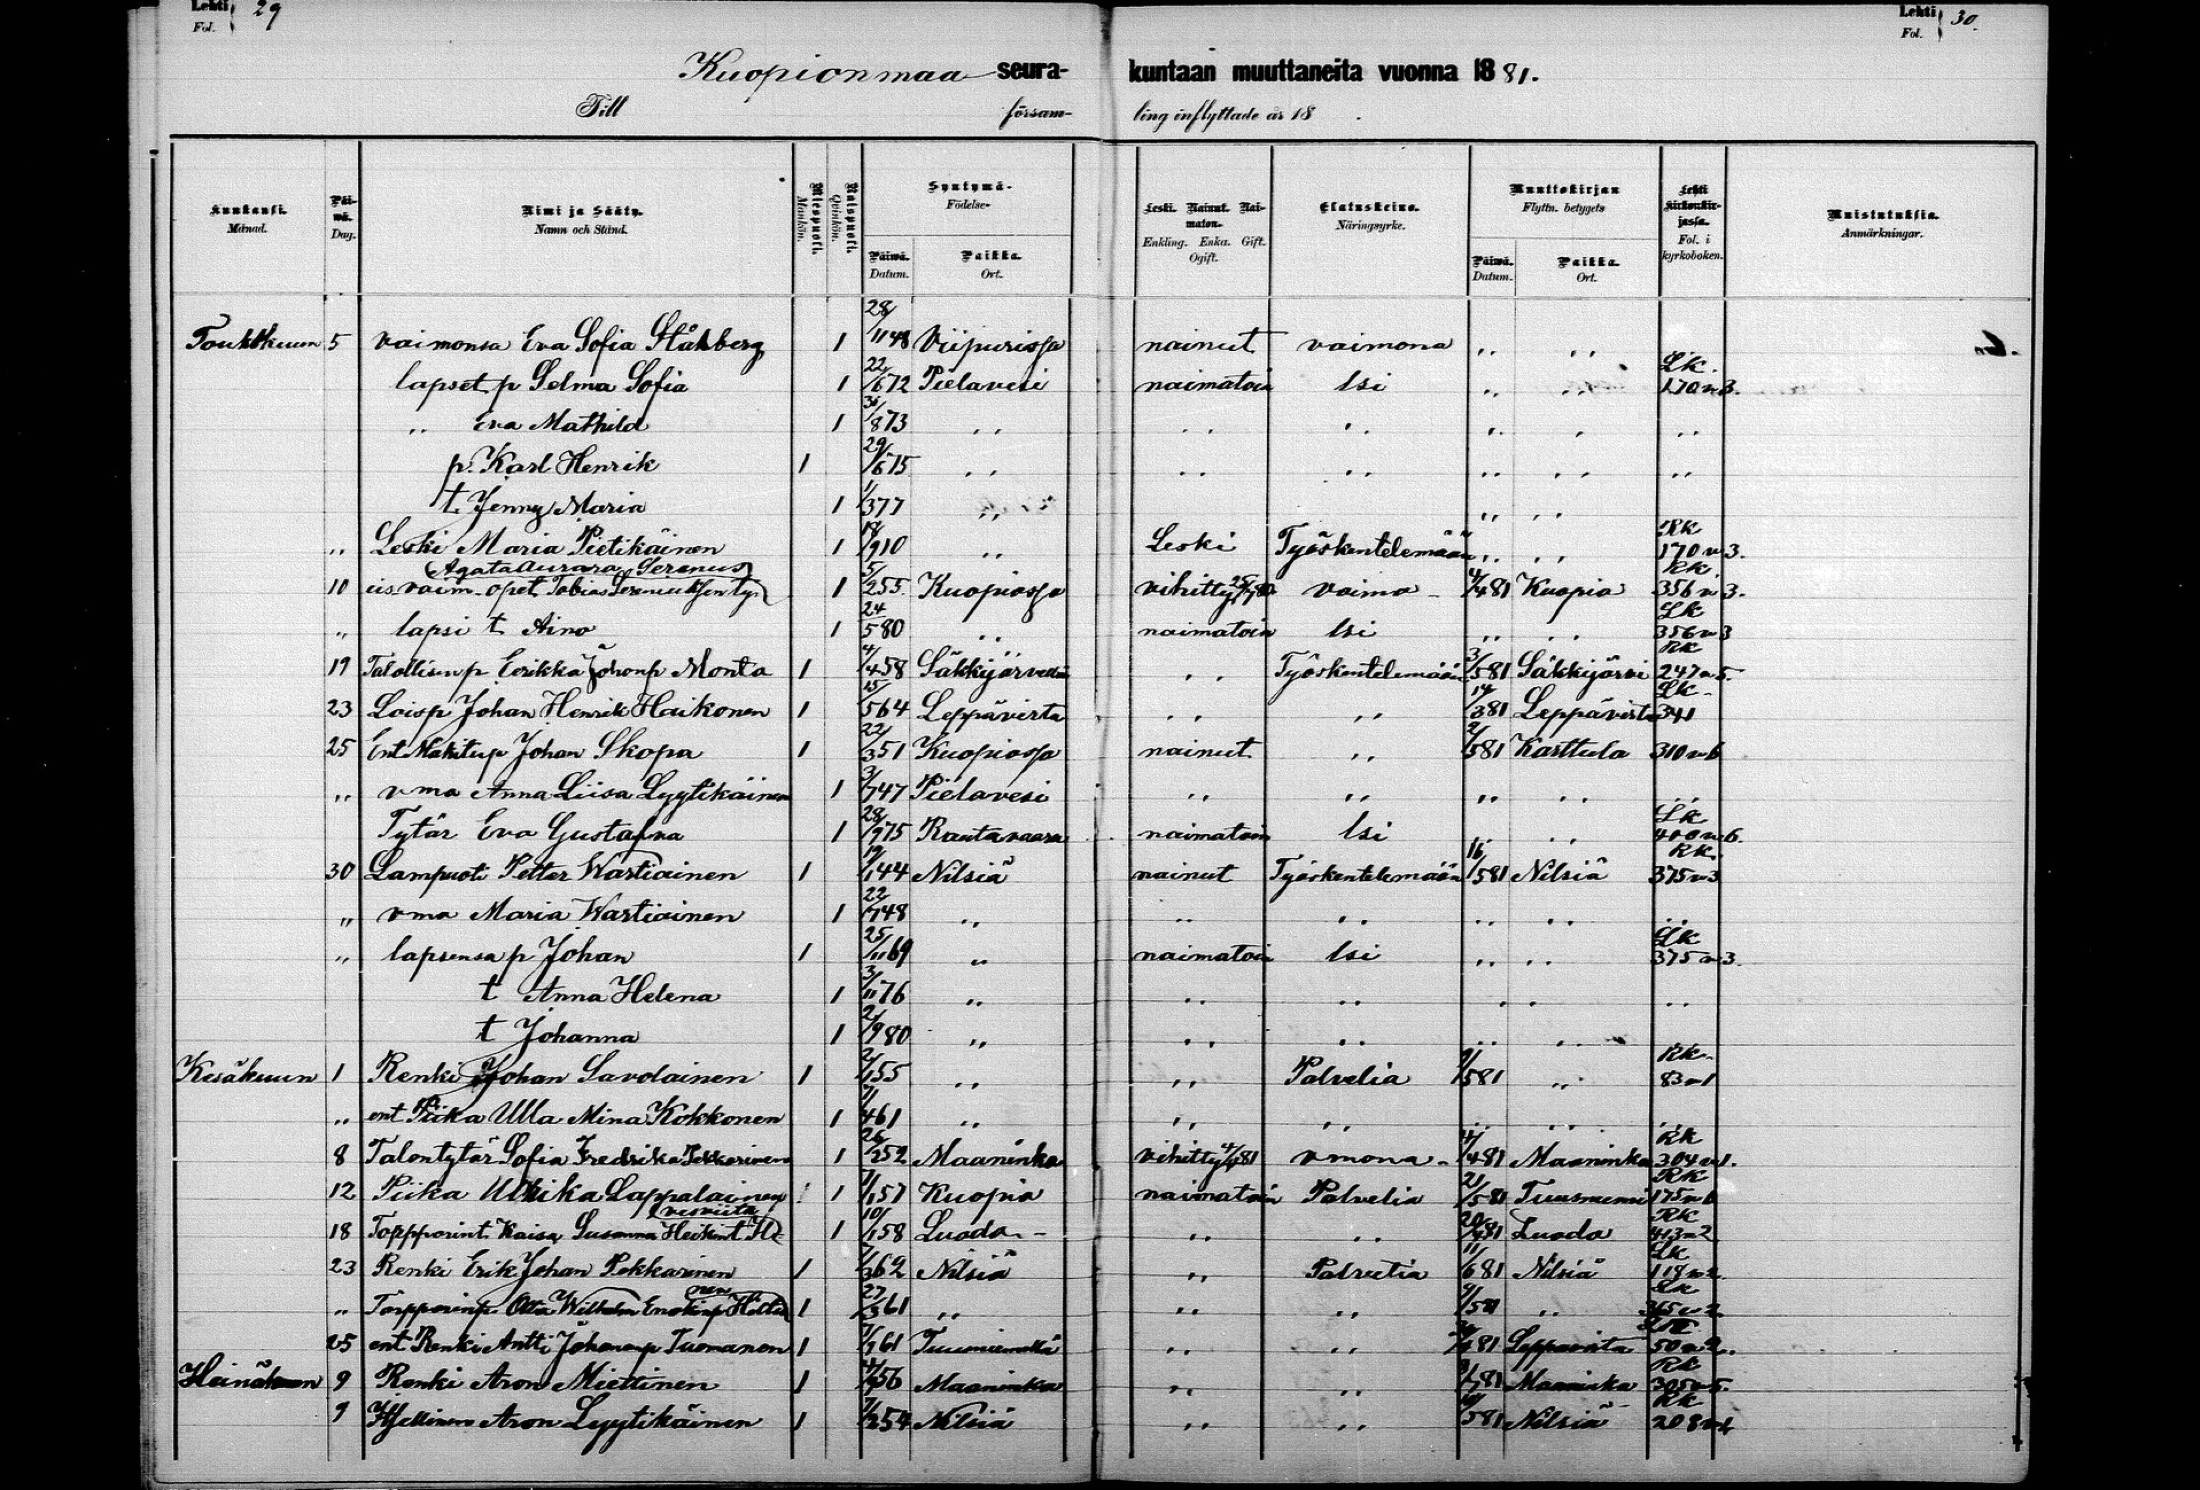 Lehti 29
Fol.
Lehti 30.
Fol.
Kuopionmaa seura- kuntaan muuttaneita vuonna 1881.
Till församling inflyttade år 18 .
Kuukausi. Månad.
Päiwä. Dag.
Nimi ja Sääty. Namn och Stånd.
Miespuoli. Mankön.
Naispuoli. Qvinkön.
Syntymä- Födelse-
Päiwä. Datum.
Paikka. Ort.
Leski. Nainut. Naimaton. Enkling. Enka. Gift. Ogift.
Elatuskeino. Näringsyrke.
Muuttokirjan Flyttn. betygets
Päiwä. Datum.
Paikka. Ort.
Lehti kirkonkirjassa. Fol. i kyrkoboken.
Muistutuksia. Anmärkningar.
Toukokuun 5 vaimonsa Eva Sofia Ståhlberg 1 28/11 48 Viipurissa nainut vaimona ,, ,,
lapset p Selma Sofia 1 22/6 72 Pielavesi naimatoin lsi ,, ,, Lk. 170 v 3.
,, Eva Mathild 1 31/8 73 ,, ,, ,, ,, ,, ,,
p. Karl Henrik 1 29/6 75 ,, ,, ,, ,, ,, ,,
t. Jenny Maria 1 1/3 77 ,, ,, ,,
,, Leski Maria Pietikäinen 1 18/9 10 ,, Leski Työskentelemään ,, ,, RK 170 v 3.
Agata Aurora Serenus
10 vaim. opet. Tobias 1 5/2 55. Kuopiossa vihitty vaimo 4/4 81 Kuopio RK 356 v 3.
,, lapsi t Aino 1 24/5 80 ,, naimatoin lsi ,, ,, Lk 356 v 3
19 Talollisen p Eerikka Johanp Monta 1 4/4 58 Säkkijärvellä ,, Työskentelemään 3/5 81 Säkkijärvi RK 247 v 5.
23 Loisp Johan Henrik Heikonen 1 15/5 64 Leppävirta ,, ,, 14/3 81 Leppävirta Lk 341
25 Ent. Mäkitup Johan Skopa 1 22/3 51 Kuopiossa nainut ,, 2/5 81 Karttula 310 v 6
,, vma Anna Liisa Lyytikäinen 1 3/7 47 Pielavesi ,, ,, ,, ,, ,,
Tytär Eva Gustafva 1 28/9 75 Rautavaara naimatoin lsi ,, ,, Lk 400 v 6.
30 Lampuoti Petter Wartiainen 1 19/1 44 Nilsiä nainut Työskentelemään 16/5 81 Nilsiä RK. 375 v 3
,, vma Maria Wartiainen 1 22/7 48 ,, ,, ,, ,, ,, ,,
,, lapsensa p Johan 1 25/11 69 ,, naimatoin lsi ,, ,, Lk 375 v 3.
t Anna Helena 1 3/11 76 ,, ,, ,, ,, ,, ,,
t Johanna 1 2/9 80 ,, ,, ,, ,, ,,
Kesäkuun 1 Renki Johan Savolainen 1 2/1 55 ,, ,, Palvelia 9/5 81 ,, RK 83 v 1
,, ent Piika Ulla Mina Kokkonen 1 7/4 61 ,, ,, ,, ,, ,, ,,
8 Talontytär Sofia Fredrika Pekkarinen 1 26/2 52 Maaninka vihitty 4/4 81 vmona 4/4 81 Maaninka RK 304 v 1.
12 Piika Ulrika Lappalainen 1 7/1 57 Kuopio naimatoin Palvelia 21/5 81 Tuusniemi RK 175 v 6
18 Kaisa Susanna 1 10/1 58 Luodo ,, ,, 20/4 81 Luodo RK 413 v 2
23 Renki Erik Johan Pekkarinen 1 7/3 62 Nilsiä ,, Palvelia 11/6 81 Nilsiä Lk 118 v 2.
,, Otto Wilhelm 1 27/3 61 ,, ,, ,, 9/5 81 ,, Lk 365 v 2
25 ent Renki Antti Johananp Tuomanen 1 7/9 61 ,, ,, 4 81 Leppävirta 50 v 2.
Heinäkuun 9 Renki Aron Miettinen 1 4/7 56 Maaninka ,, ,, 81 Maaninka RK 305 v 5.
9 Aron Lyytikäinen 1 7/2 54 Nilsiä ,, ,, 5 81 Nilsiä RK 208 v 4